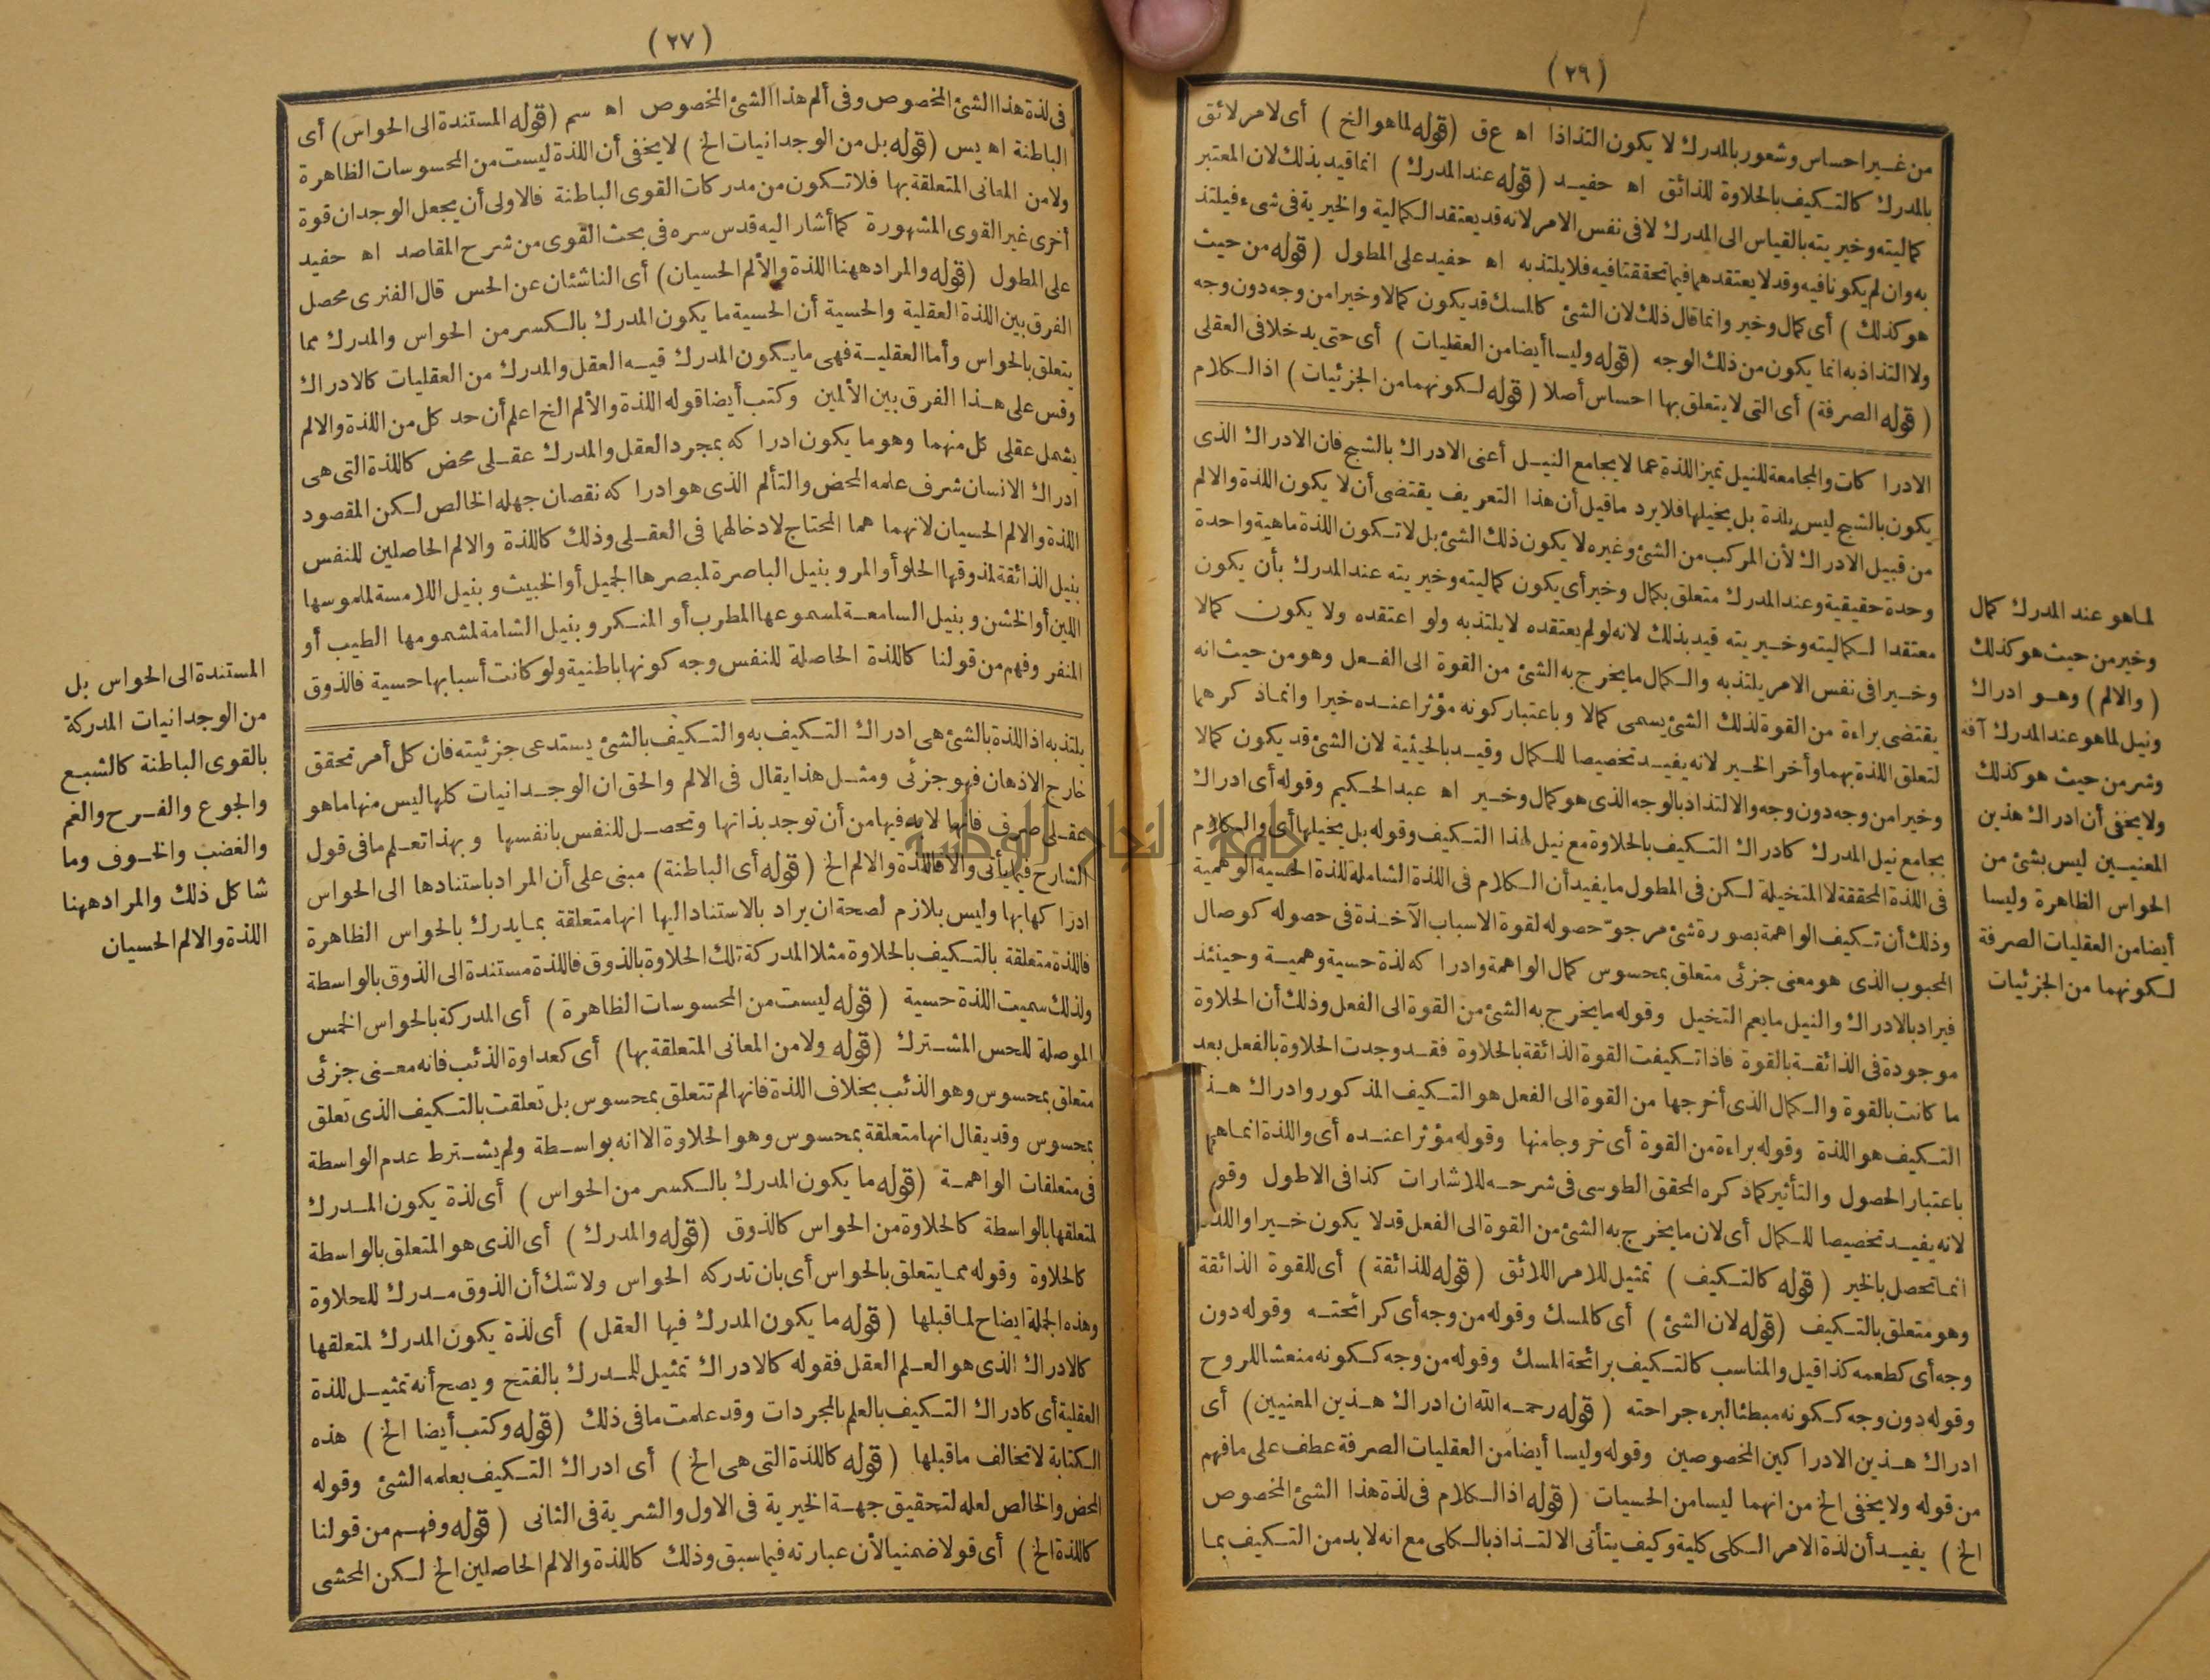 (٢٩)
من غير احساس وشعور بالمدرك لا يكون التذاذا اه ع ق (قوله لما هو الخ) أى لامر لائق
بالمدرك كالتكيف بالحلاوة للذائق اه حفيد (قوله عند المدرك) انما قيد بذلك لان المعتبر
كماليته وخيريته بالقياس الى المدرك لا فى نفس الامر لانه قد يعتقد الكمالية والخيرية فى شىء فيلتذ
به وان لم يكونا فيه وقد لا يعتقدهما فيما تحققتا فيه فلا يلتذ به اه حفيد على المطول (قوله من حيث
هو كذلك) أى كمال وخير وانما قال ذلك لان الشئ كالمسك قد يكون كمالا وخيرا من وجه دون وجه
ولا التذاذ به انما يكون من ذلك الوجه (قوله وليسا أيضا من العقليات) أى حتى يدخلا فى العقلى
(قوله الصرفة) أى التى لا يتعلق بها احساس أصلا (قوله لكونهما من الجزئيات) اذ الكلام
الادراكات والمجامعة للنيل تميز اللذة عما لا يجامع النيل أعنى الادراك بالشبح فان الادراك الذى
يكون بالشبح ليس بلذة بل يخيلها فلا يرد ما قيل أن هذا التعريف يقتضى أن لا يكون اللذة والالم
من قبيل الادراك لأن المركب من الشئ وغيره لا يكون ذلك الشئ بل لا تكون اللذة ماهية واحدة
وحدة حقيقية وعند المدرك متعلق بكمال وخير أى يكون كماليته وخيريته عند المدرك بأن يكون
معتقدا لكماليته وخيريته قيد بذلك لانه لو لم يعتقده لا يلتذ به ولو اعتقده ولا يكون كمالا
وخيرا فى نفس الامر يلتذ به والكمال ما يخرج به الشئ من القوة الى الفعل وهو من حيث انه
يقتضى براءة من القوة لذلك الشئ يسمى كمالا وباعتبار كونه مؤثرا عنده خيرا وانما ذكرهما
لتعلق اللذة بهما وأخر الخير لانه يفيد تخصيصا للكمال وقيد بالحيثية لان الشئ قد يكون كمالا
وخيرا من وجه دون وجه والالتذاذ بالوجه الذى هو كمال وخير اه عبد الحكيم وقوله أى ادراك
يجامع نيل المدرك كادراك التكيف بالحلاوة مع نيل لهذا التكيف وقوله بل يخيلها أى والكلام
فى اللذة المحققة لا المتخيلة لكن فى المطول ما يفيد أن الكلام فى اللذة الشاملة للذة الحسية الوهمية
وذلك أن تكيف الواهمة بصورة شئ مرجوّ حصوله لقوة الاسباب الآخذة فى حصوله كوصال
المحبوب الذى هو معنى جزئى متعلق بمحسوس كمال الواهمة وادراكه لذة حسية وهمية وحينئذ
فيراد بالادراك والنيل ما يعم التخيل وقوله ما يخرج به الشئ من القوة الى الفعل وذلك أن الحلاوة
موجودة فى الذائقة بالقوة فاذا تكيفت القوة الذائقة بالحلاوة فقد وجدت الحلاوة بالفعل بعد
ما كانت بالقوة والكمال الذى أخرجها من القوة الى الفعل هو التكيف المذكور وادراك هذ
التكيف هو اللذة وقوله براءة من القوة أى خروجا منها وقوله مؤثرا عنده أى واللذة انما هى
باعتبار الحصول والتأثير كما ذكره المحقق الطوسى فى شرحه للاشارات كذا فى الاطول وقو
لانه يفيد تخصيصا للكمال أى لان ما يخرج به الشئ من القوة الى الفعل قد لا يكون خيرا واللذ
انما تحصل بالخير (قوله كالتكيف) تمثيل للامر اللائق (قوله للذائقة) أى للقوة الذائقة
وهو متعلق بالتكيف (قوله لان الشئ) أى كالمسك وقوله من وجه أى كرائحته وقوله دون
وجه أى كطعمه كذا قيل والمناسب كالتكيف برائحة المسك وقوله من وجه ككونه منعشا للروح
وقوله دون وجه ككونه مبطئا لبرء جراحته (قوله رحمه الله ان ادراك هذين المعنيين) أى
ادراك هذين الادراكين المخصوصين وقوله وليسا أيضا من العقليات الصرفة عطف على ما فهم
من قوله ولا يخفى الخ من انهما ليسا من الحسيات (قوله اذ الكلام فى لذة هذا الشئ المخصوص
الخ) يفيد أن لذة الامر الكلى كلية وكيف يتأتى الالتذاذ بالكلى مع انه لا بد من التكيف بما
لما هو عند المدرك كمال
وخير من حيث هو كذلك
(والالم) وهو ادراك
ونيل لما هو عند المدرك آفة
وشر من حيث هو كذلك
ولا يخفى أن ادراك هذين
المعنيين ليس بشئ من
الحواس الظاهرة وليسا
أيضا من العقليات الصرفة
لكونهما من الجزئيات
(٢٧)
فى لذة هذا الشئ المخصوص وفى ألم هذا الشئ المخصوص اه سم (قوله المستندة الى الحواس) أى
الباطنة اه يس (قوله بل من الوجدانيات الخ) لا يخفى أن اللذة ليست من المحسوسات الظاهرة
ولا من المعانى المتعلقة بها فلا تكون من مدركات القوى الباطنة فالاولى أن يجعل الوجدان قوة
أخرى غير القوى المشهورة كما أشار اليه قدس سره فى بحث القوى من شرح المقاصد اه حفيد
على المطول (قوله والمراد ههنا اللذة والألم الحسيان) أى الناشئان عن الحس قال الفنرى محصل
الفرق بين اللذة العقلية والحسية أن الحسية ما يكون المدرك بالكسر من الحواس والمدرك مما
يتعلق بالحواس وأما العقلية فهى ما يكون المدرك فيه العقل والمدرك من العقليات كالادراك
وقس على هذا الفرق بين الألمين وكتب أيضا قوله اللذة والألم الخ اعلم أن حد كل من اللذة والالم
يشمل عقلى كل منهما وهو ما يكون ادراكه بمجرد العقل والمدرك عقلى محض كاللذة التى هى
ادراك الانسان شرف علمه المحض والتألم الذى هو ادراكه نقصان جهله الخالص لكن المقصود
اللذة والالم الحسيان لانهما هما المحتاج لادخالهما فى العقلى وذلك كاللذة والالم الحاصلين للنفس
بنيل الذائقة لمذوقها الحلو أو المر وبنيل الباصرة لمبصرها الجميل أو الخبيث وبنيل اللامسة لملموسها
اللين أو الخشن وبنيل السامعة لمسموعها المطرب أو المنكر وبنيل الشامة لمشمومها الطيب أو
المنفر وفهم من قولنا كاللذة الحاصلة للنفس وجه كونها باطنية ولو كانت أسبابها حسية فالذوق
يلتذ به اذ اللذة بالشئ هى ادراك التكيف به والتكيف بالشئ يستدعى جزئيته فان كل أمر تحقق
خارج الاذهان فهو جزئى ومثل هذا يقال فى الالم والحق ان الوجدانيات كلها ليس منها ما هو
عقلى صرف فانها لا بد فيها من أن توجد بذاتها وتحصل للنفس بانفسها وبهذا تعلم ما فى قول
الشارح فيما يأتى والا فاللذة والالم الخ (قوله أى الباطنة) مبنى على أن المراد باستنادها الى الحواس
ادراكها بها وليس بلازم لصحة ان يراد بالاستناد اليها انها متعلقة بما يدرك بالحواس الظاهرة
فاللذة متعلقة بالتكيف بالحلاوة مثلا المدركة تلك الحلاوة بالذوق فاللذة مستندة الى الذوق بالواسطة
ولذلك سميت اللذة حسية (قوله ليست من المحسوسات الظاهرة) أى المدركة بالحواس الخمس
الموصلة للحس المشترك (قوله ولا من المعانى المتعلقة بها) أى كعداوة الذئب فانه معنى جزئى
متعلق بمحسوس وهو الذئب بخلاف اللذة فانها لم تتعلق بمحسوس بل تعلقت بالتكيف الذى تعلق
بمحسوس وقد يقال انها متعلقة بمحسوس وهو الحلاوة الا انه بواسطة ولم يشترط عدم الواسطة
فى متعلقات الواهمة (قوله ما يكون المدرك بالكسر من الحواس) أى لذة يكون المدرك
لمتعلقها بالواسطة كالحلاوة من الحواس كالذوق (قوله والمدرك) أى الذى هو المتعلق بالواسطة
كالحلاوة وقوله مما يتعلق بالحواس أى بان تدركه الحواس ولا شك أن الذوق مدرك للحلاوة
وهذه الجملة ايضاح لما قبلها (قوله ما يكون المدرك فيها العقل) أى لذة يكون المدرك لمتعلقها
كالادراك الذى هو العلم العقل فقوله كالادراك تمثيل للمدرك بالفتح ويصح أنه تمثيل للذة
العقلية أى كادراك التكيف بالعلم بالمجردات وقد علمت ما فى ذلك (قوله وكتب أيضا الخ) هذه
الكتابة لا تخالف ما قبلها (قوله كاللذة التى هى الخ) أى ادراك التكيف بعلمه الشئ وقوله
المحض والخالص لعله لتحقيق جهة الخيرية فى الاول والشرية فى الثانى (قوله وفهم من قولنا
كاللذة الخ) أى قولا ضمنيا لأن عبارته فيما سبق وذلك كاللذة والالم الحاصلين الخ لكن المحشى
المستندة الى الحواس بل
من الوجدانيات المدركة
بالقوى الباطنة كالشبع
والجوع والفرح والغم
والغضب والخوف وما
شاكل ذلك والمراد ههنا
اللذة والالم الحسيان
جامعة النجاح الوطنية